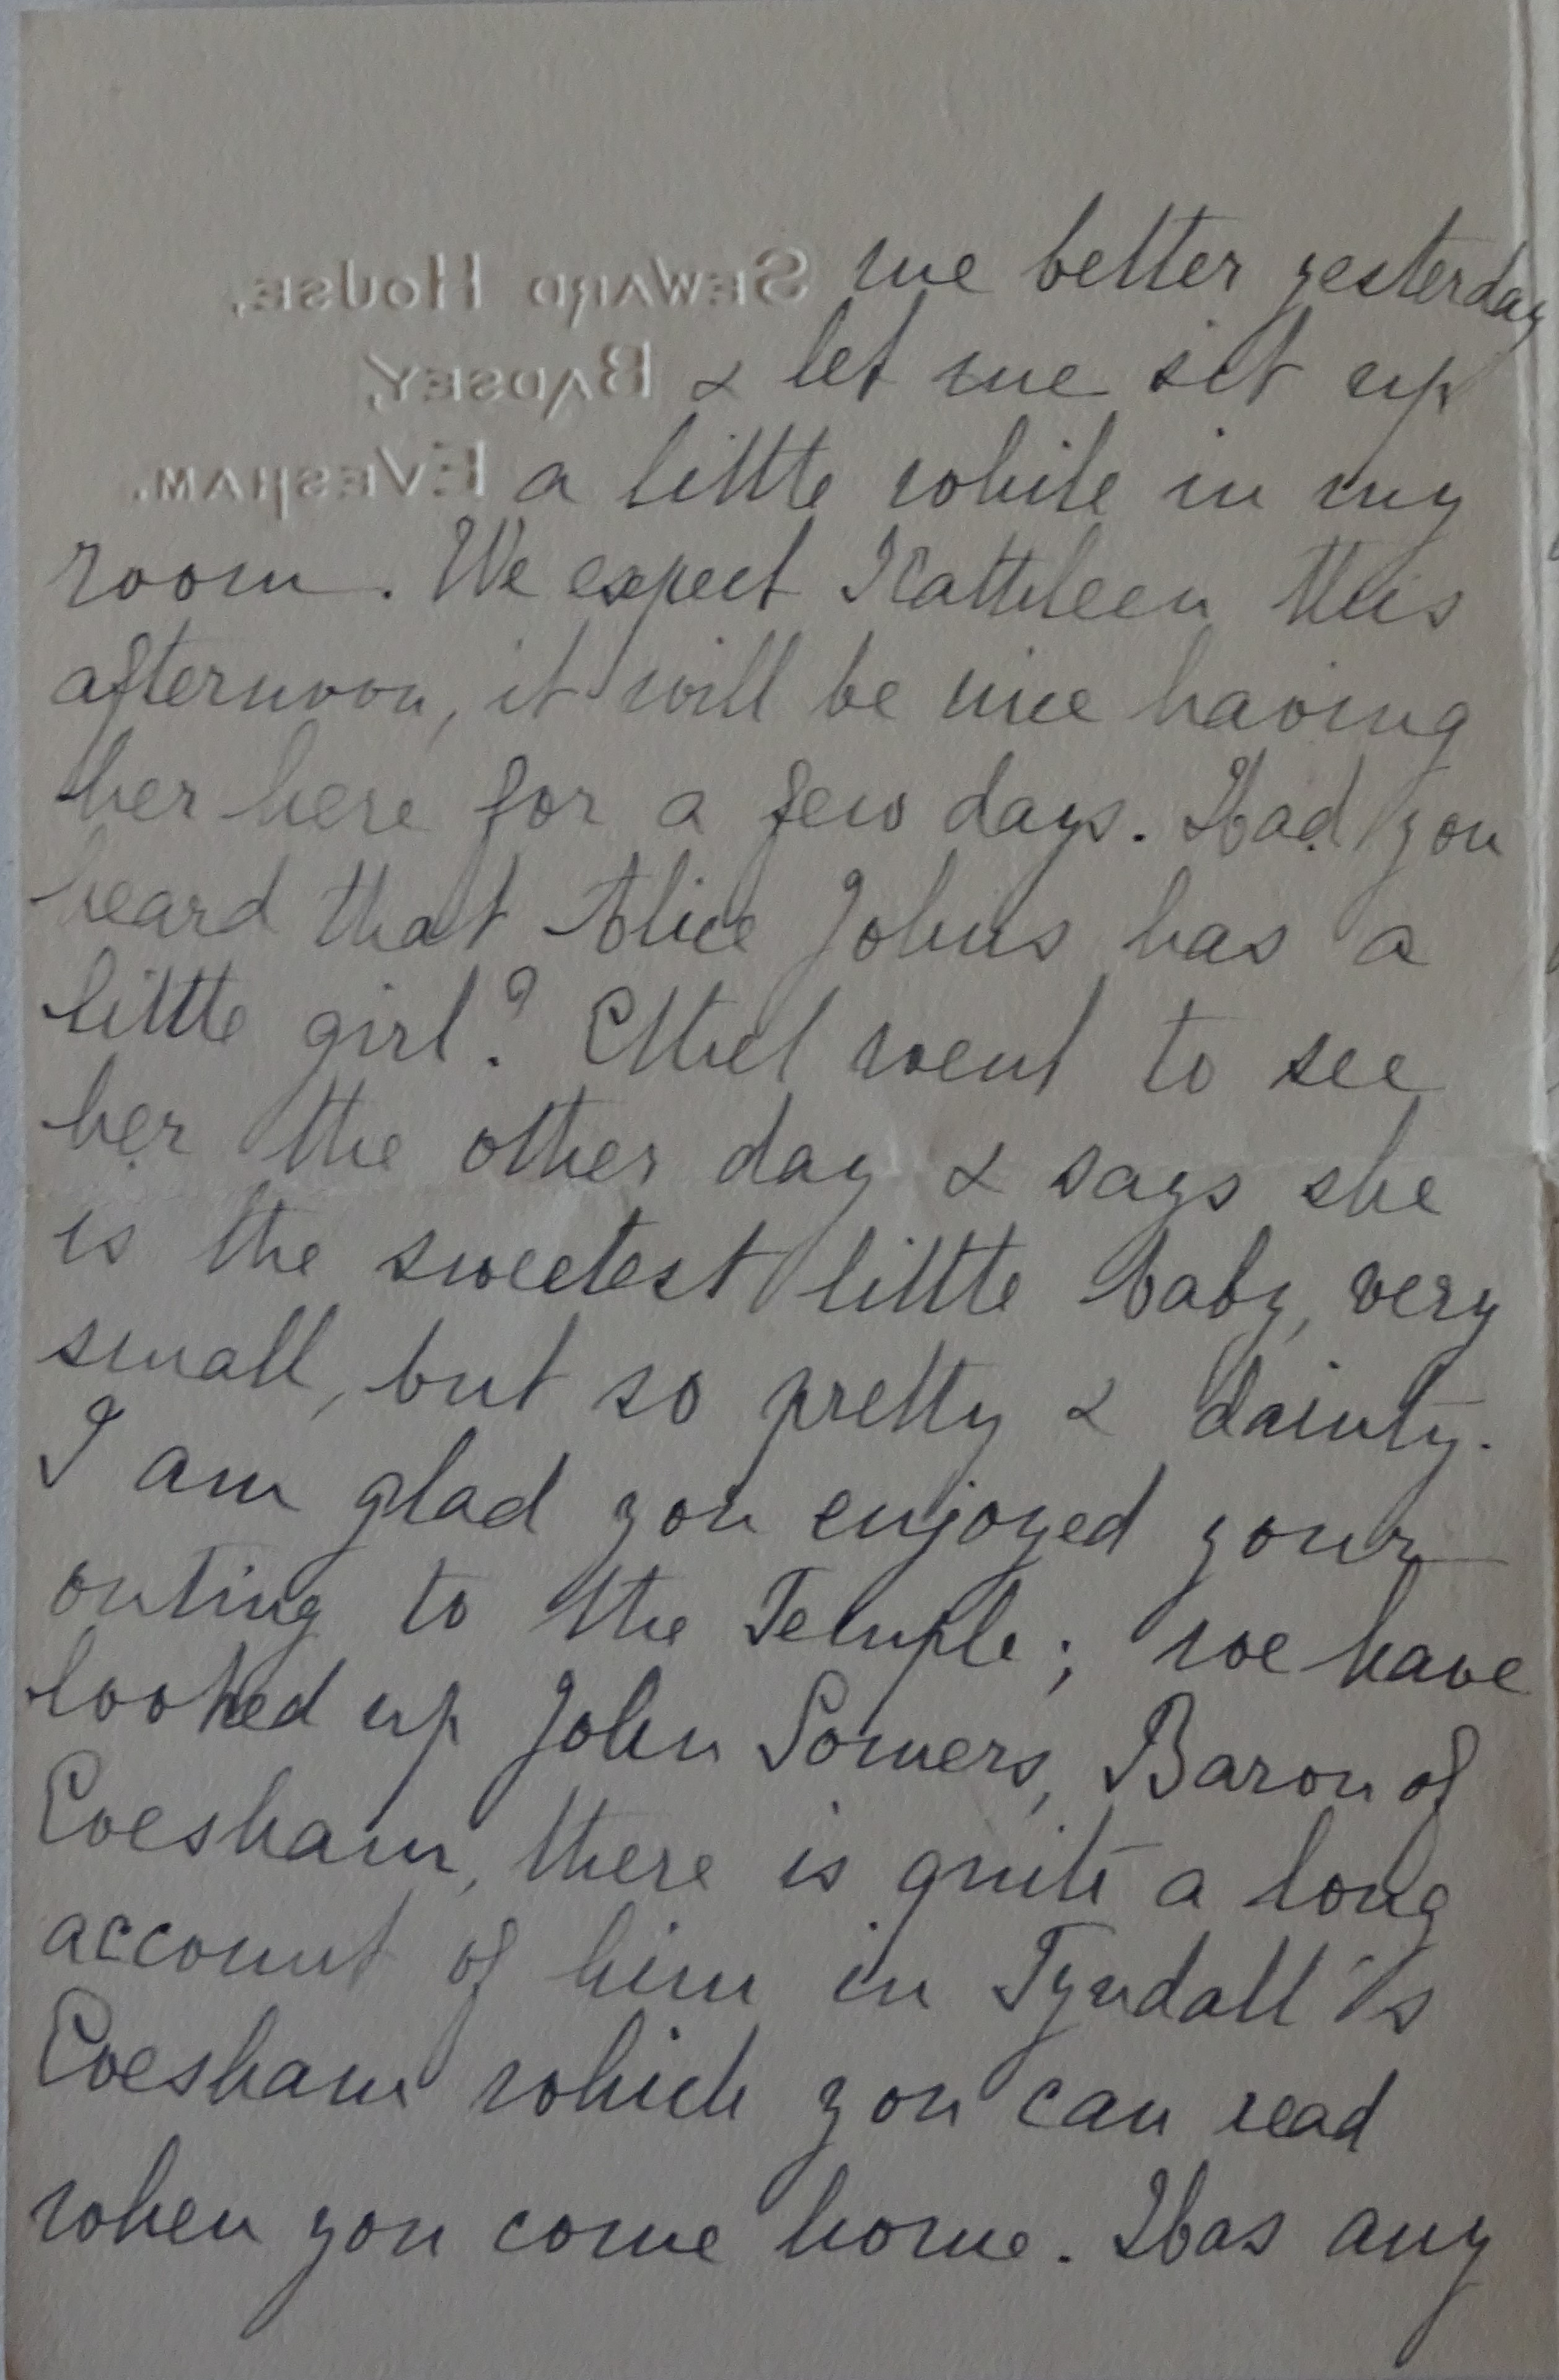 SEWARD HOUSE,
BADSEY,
EVESHAM.
me better yesterday
& let me sit up
a little while in my
room. We expect Kathleen this
afternoon, it will be nice having
her here for a few days. Had you
heard that Alice Johns has a
little girl? Ethel went to see
her the other day & says she
is the sweetest little baby, very
small, but so pretty & dainty.
I am glad you enjoyed your
outing to the Temple; we have
looked up John Somers, Baron of
Evesham, there is quite a long
account of him in Tyndall's
Evesham which you can read
when you come home. Has any